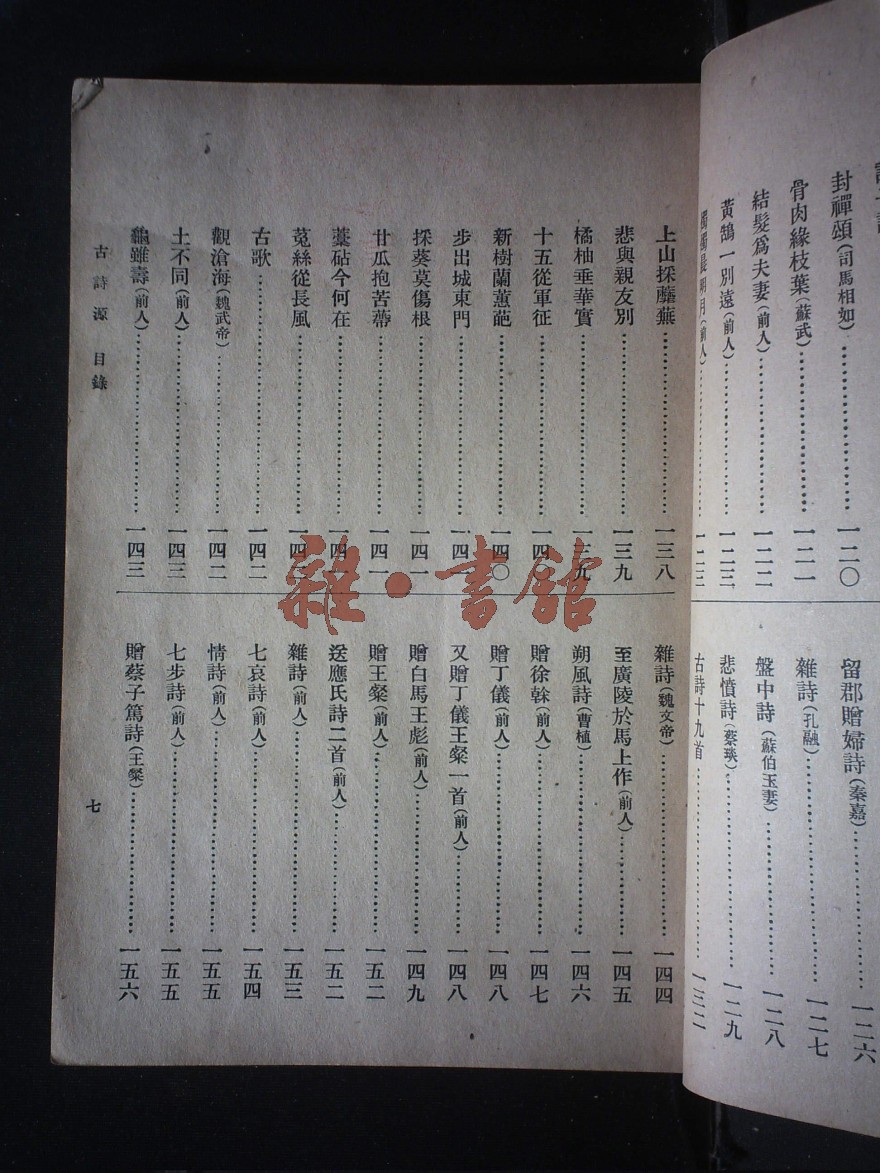 封禪頌(司馬相如)……一二〇
骨肉緣枝葉(蘇武)……一二一
結髮爲夫妻(前人)……一二二
黃鵠一別遠(前人)……一二三
燭燭晨明月(前人)……一二三
留郡贈婦詩(秦嘉)……一二六
雜詩(孔融)……一二七
盤中詩(蘇伯玉妻)……一二八
悲憤詩(蔡琰)……一二九
古詩十九首……一三二
上山採蘼蕪……一三八
悲與親友別……一三九
橘柚垂華實……一三九
十五從軍征……一四〇
新樹蘭蕙葩……一四〇
步出城東門……一四一
採葵莫傷根……一四一
甘瓜抱苦蔕……一四一
藁砧今何在……一四
菟絲從長風……一四
古歌……一四二
觀滄海(魏武帝)……一四二
土不同(前人)……一四三
龜雖壽(前人)……一四三
雜詩(魏文帝)……一四四
至廣陵於馬上作(前人)……一四五
朔風詩(曹植)……一四六
贈徐榦(前人)……一四七
贈丁儀(前人)……一四八
又贈丁儀王粲一首(前人)……一四八
贈白馬王彪(前人)……一四九
贈王粲(前人)……一五二
送應氏詩二首(前人)……一五二
雜詩(前人)……一五三
七哀詩(前人)……一五四
情詩(前人)……一五五
七步詩(前人)……一五五
贈蔡子篤詩(王粲)……一五六
古詩源 目錄
七
雜·書館